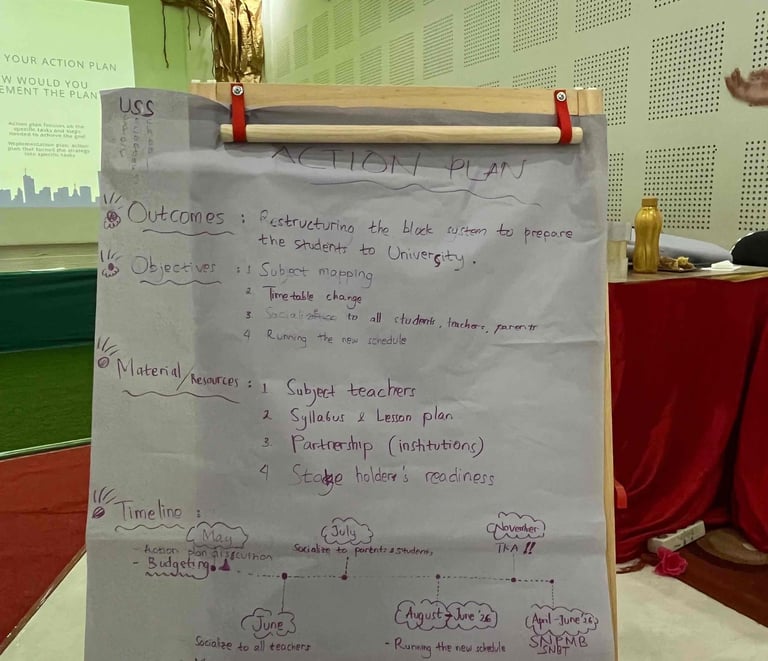 YOUR ACTION PLAN
W WOULD YOU
EMENT THE PLAN
Action plan focuses on the
specific tasks and steps
needed to achieve the goal
Implementation plan: action
plan that turned the strategy
into specific tasks
USS
ACTION PLAN
Outcomes : Restructuring the block system to prepare
the students to University.
Objectives : 1 Subject mapping
2. Timetable change
3 to all students, teachers, parents
4 Running the new schedule
Material/Resources : 1 Subject teachers
2. Syllabus & Lesson plan
3. Partnership (institutions)
4 holder's readiness
Timeline :
May
- Action plan discussion
- Budgeting
July
Socialize to parents & students
November
TKA !!
June
Socialize to all teachers
August → June '26
- Running the new schedule
April - June '26
SNPMB
SNBT